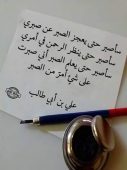 سأصبر حتى يعجز الصبر عن صبري
سأصبر حتى ينظر الرحمن في أمري
سأصبر حتى يعلم الصبر أني صبرت
على شيء أمرّ من الصبر
علي بن أبي طالب